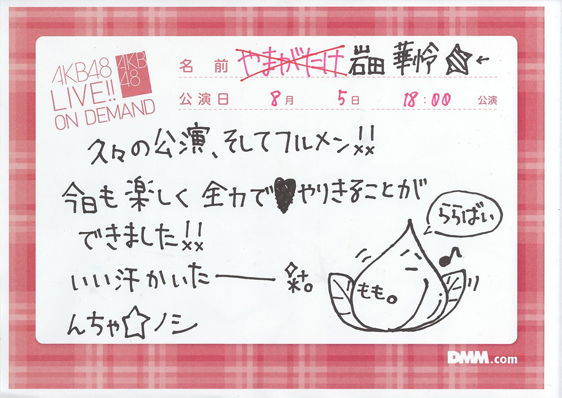 AKB48
LIVE!!
ON DEMAND
AKB
48
名前 やまがたけ 岩田 華怜☆←
公演日 8月 5日 18:00 公演
久々の公演、そしてフルメン!!
今日も楽しく全力で♥やりきることが
できました!!
いい汗かいたーーー
んちゃ☆ノシ
ららばい
♪
もも。
DMM.com